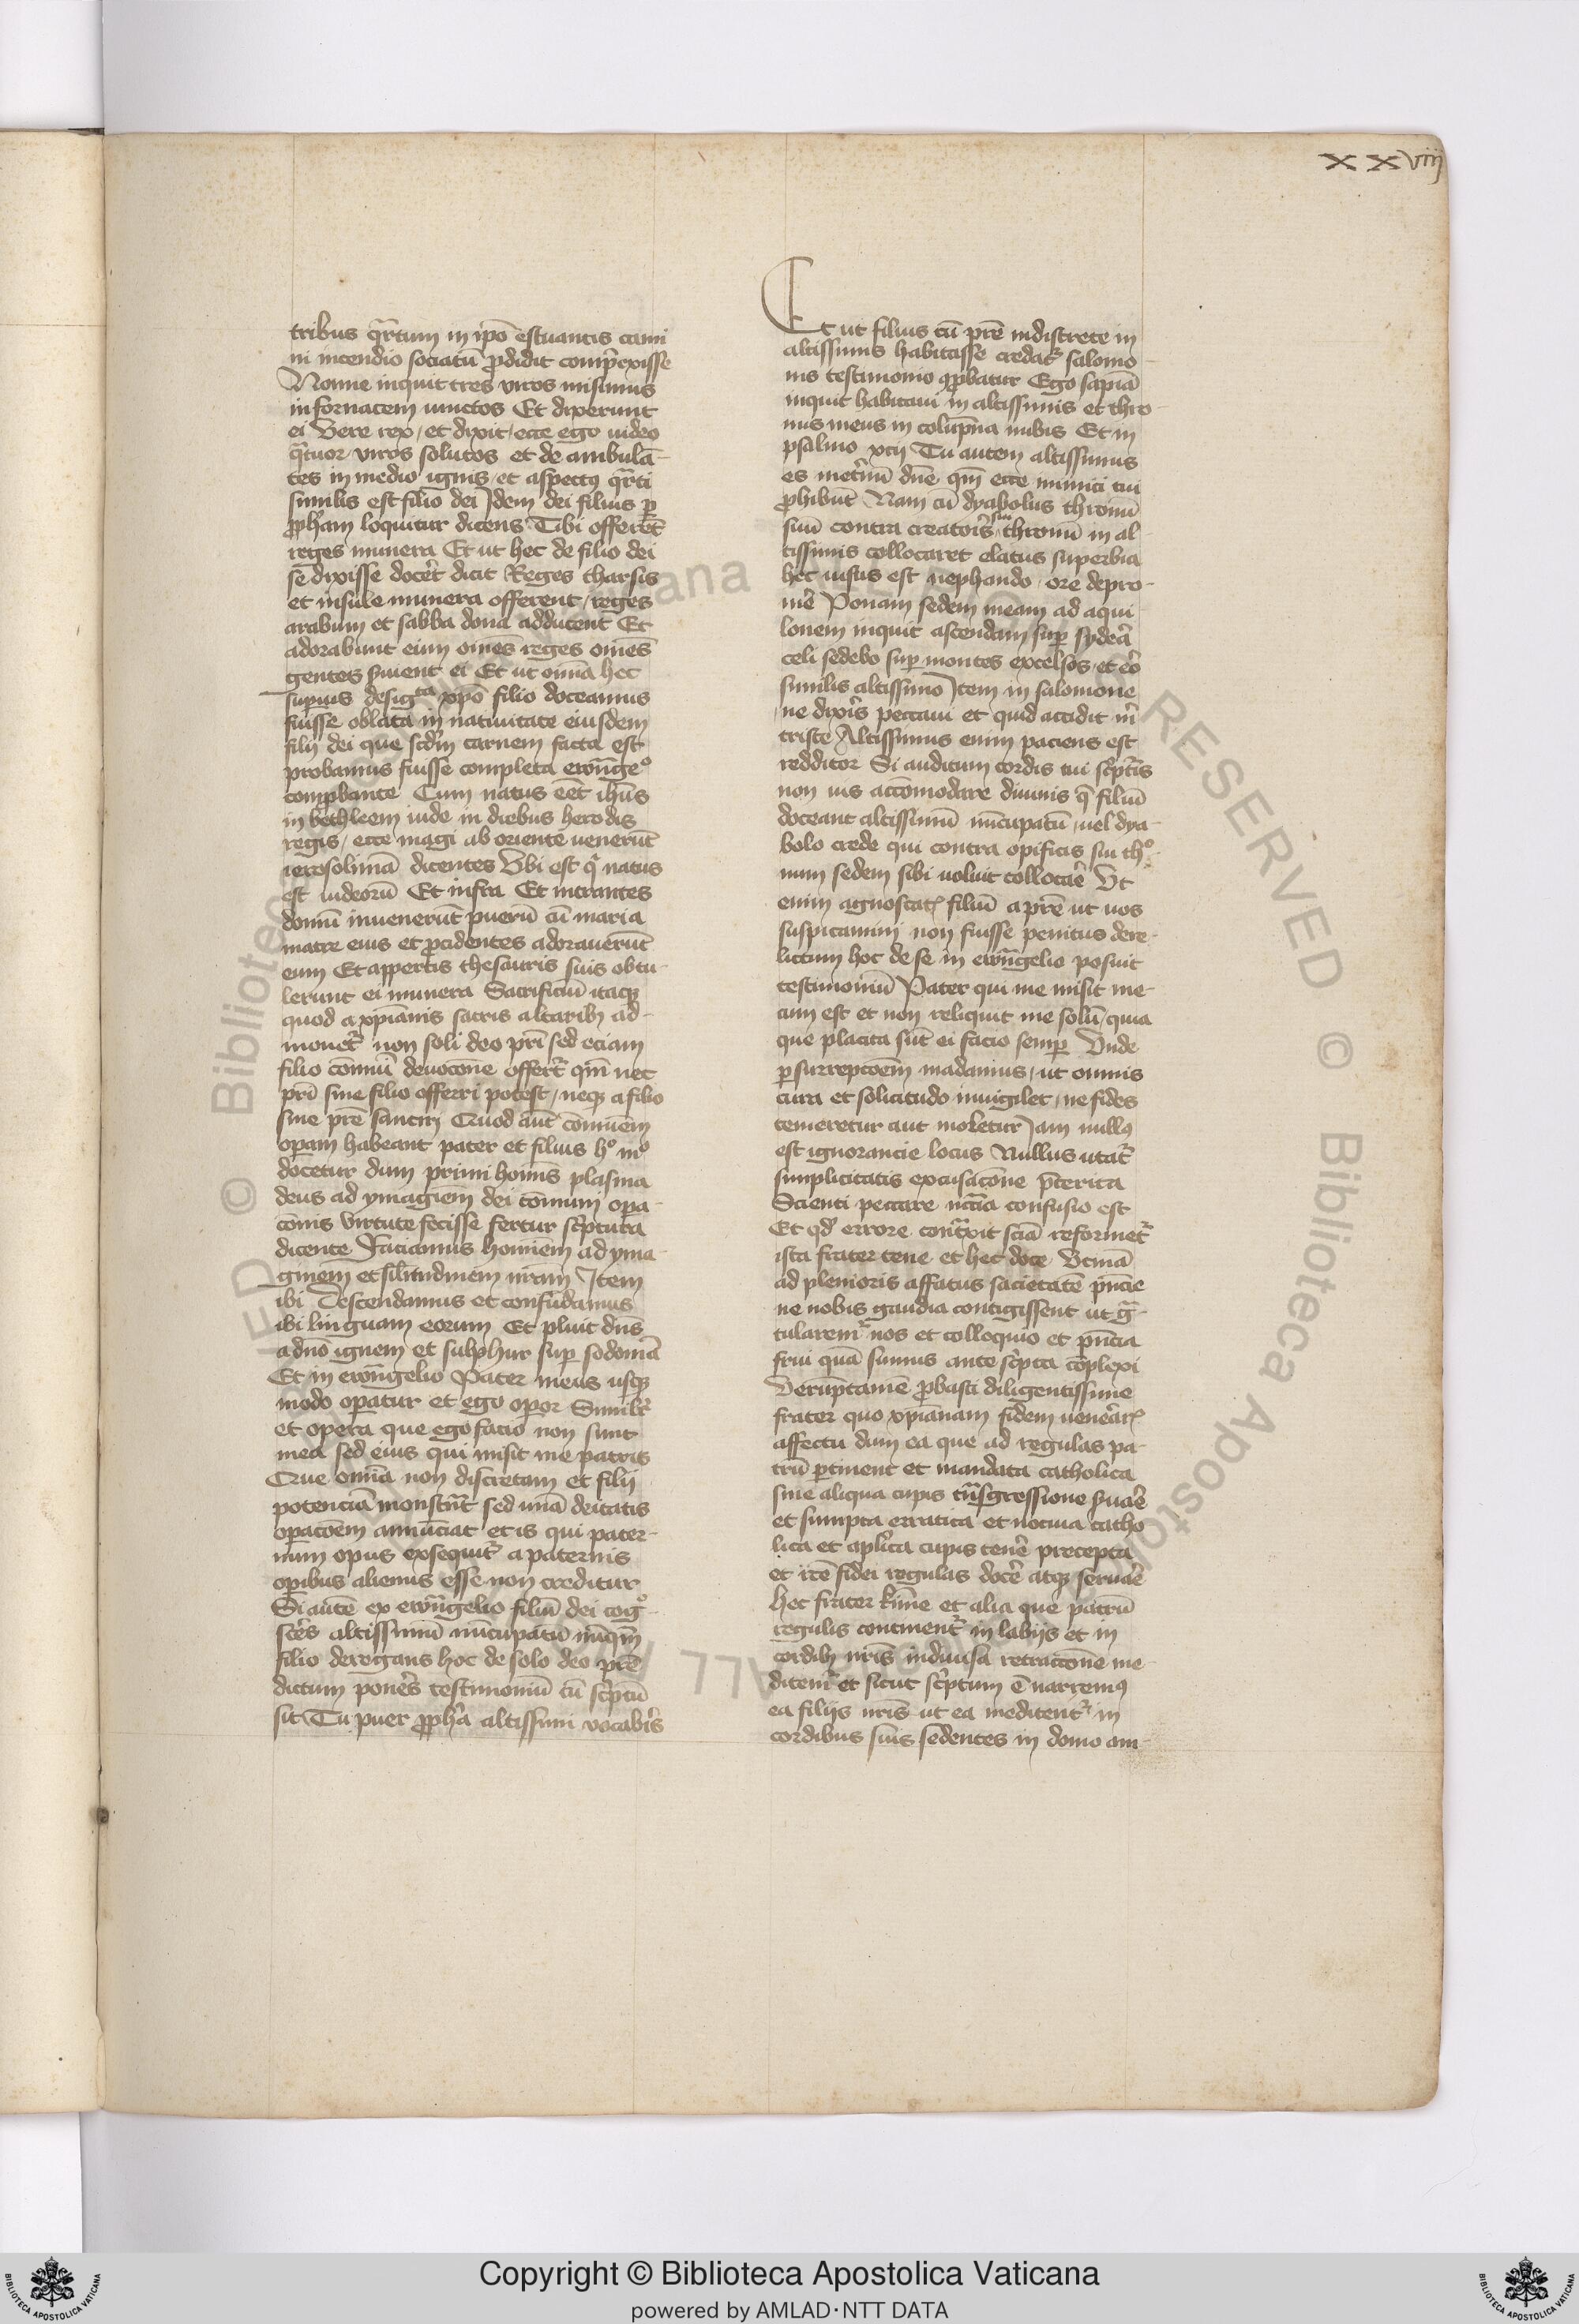 xxviij
tribus qͣrtum in ip̄o estuantis cami
ni incendio sociatū ꝓdidit comp̄exisse
Nonne inquit tres viros misimus
in fornacem iunctos Et dixerunt
ei Vere rex / et dixit / ecce ego uideo
qͣtuor viros solutos et de ambulā-
tes in medio ignis / et aspectꝯ qͣrti
similis est filio dei Idem dei filius ꝑ
ꝓph̄am loquitur dicens Tibi offerēt
reges munera Et ut hec de filio dei
se dixisse docēt dicit Reges tharsis
et insule munera offerent / reges
arabum et sabba dona adducent Et
adorabunt eum om̄es reges om̄es
gentes ẜuient ei Et ut om̄ia hec
suꝑius desigᵗᵃ xp̄o filio doceamus
fuisse oblata in natiuitate eiusdem
filij dei que scd̄m carnem facta est
probamus fuisse completa ewāngeᵒ
comꝓbante Cum natus eēt ihūs
in bethleem iude in diebus herodis
regis / ecce magi ab oriente uenerūt
ierosolimā dicentes Vbi est qͥ natus
est iudeorū Et infra Et intrantes
domū inuenerūt puerū cū maria
matre eius et ꝓcidentes adorauerūt
eum Et appertis thesauris suis obtu-
lerunt ei munera Sacrificiū itaqꝫ
quod a xp̄ianis sacris altaribꝫ ad-
mouet᷑ non soli deo pr̄i sed eciam
filio cōmuni deuocōne offert᷑ qm̄ nec
pr̄i sine filio offerri potest / neqꝫ a filio
sine pr̄e sanciri Quod aūt cōmuēm
oꝑam habeant pater et filius hᵒ mᵒ
docetur dum primi homīs plasma
deus ad ymagiēm dei cōmuni oꝑa-
cōnis virtute fecisse fertur sc̄ptura
dicente Faciamus homīem ad yma-
ginem et silitudinem nr̄am Item
ibi Descendamus et confūdamus
ibi linguam eorum Et pluit dn̄s
a dn̄o ignem et sulphur suꝑ sodomā
Et in ewāngelio Pater meus usqꝫ
modo oꝑatur et ego oꝑor Similr̄
et opera que ego facio non sunt
mea sed eius qui misit me patris
Que om̄ia non discretam et filij
potenciā monstrāt sed unā deitatis
oꝑacōem annūciat et is qui pater-
num opus exsequit᷑ a paternis
oꝑibus alienus esse non creditur
Si autē ex ewāngelio filiū dei cogᵒ-
sc̄es altissimū nūcupatū nūqm̄
filio derogans hoc de solo deo pr̄e
dictum pon̄es testimoniū cū sc̄ptū
sit Tu puer ꝓph̄a altissimi vocab̄is
Et ut filius cū pr̄e indiscrete in
altissimis habitasse credat᷑ salomo-
nis testimonio ꝓbatur Ego sapiā
inquit habitaui in altissimis et thro-
nus meus in colūpna nubis Et in
psalmo xcij Tu autem altissimus
es inet̄nū dn̄e qm̄ ecce inimici tui
ꝑhibūt Nam cū dyabolus thronū
suū contra creatoris sui thronū in al-
tissimis collocaret elatus superbia
hec uisus est nephando ore depro-
mē Ponam sedem meam ad aqui-
lonem inquit ascendam suꝑ sydeā
celi sedebo suꝑ montes excelsos / et eō
similis altissimo Item in salomone
ne dix̄is peccaui et quid accidit m̄
triste Altissimus enim paciens est
redditor Si auditum cordis tui sc̄pt̄is
non uis accōmodare diuinis q̄ filiū
doceant altissimū nūcupatū / uel dya-
bolo crede qui contra opificis sui thᵒ-
num sedem sibi uoluit collocāe Vt
enim agnoscat᷑ filiū a pr̄e ut uos
suspicamini non fuisse penitus dere-
lictum hoc de se in ewāngelio posuit
testimoniū Pater qui me misit me-
cum est et non reliquit me solū / quia
que placita sūt ei facio semꝑ Vnde
ꝑ surrepcōem madamus / ut omnis
cura et solicitudo inuigilet / ne fides
temeretur aut moletur Iam nullꝯ
est ignorancie locus Nullus utat᷑
simplicitatis excusacōne p̄terita
Scienti peccare nc̄tia confusio est
Et qd̓ errore cont̄xit sciā reformet᷑
ista frater tene et hec doce Vtinā
ad plenioris affatus sacietatē p̄ncie
ne nobis gaudia contigissent ut gͣ-
tularem᷑ nos et colloquio et p̄ncia
frui quā sumus ante sc̄pta cōplexi
Verūptamē ꝓbasti diligentissime
frater quo xp̄ianam fidem ueneār᷑
affectu dum ea que ad regulas pa-
trū ꝑtinent et mandata catholica
sine aliqua cupis trāsgressione ẜuāe
et sumpta erratica et nociua catho
lica et aplīca cupis tenē precepta
et itē fidei regulas docē atqꝫ seruāe
hec frater kīme et alia que patrū
regulis continent᷑ in labijs et in
cordibꝫ nr̄is indiuisa retractōne me-
ditem᷑ et sicut sc̄ptum ē narremꝯ
ea filijs nr̄is ut ea meditent᷑ in
cordibus suis sedentes in domo am-
Copyright © Biblioteca Apostolica Vaticana
powered by AMLAD·NTT DATA